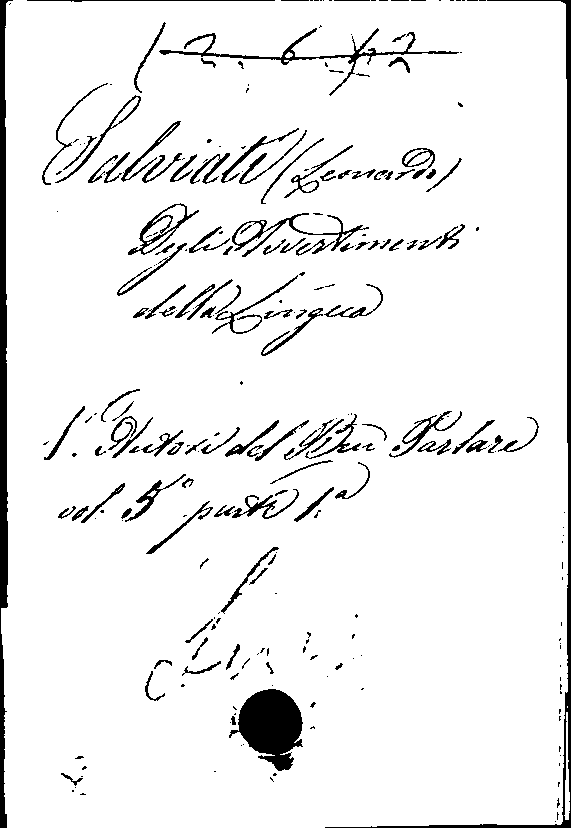 12.6.12
Salviati (Leonardo)
Degli Avvertimenti
della Lingua
1.° Autori del Ben Parlare
vol. 5° parte 1.a